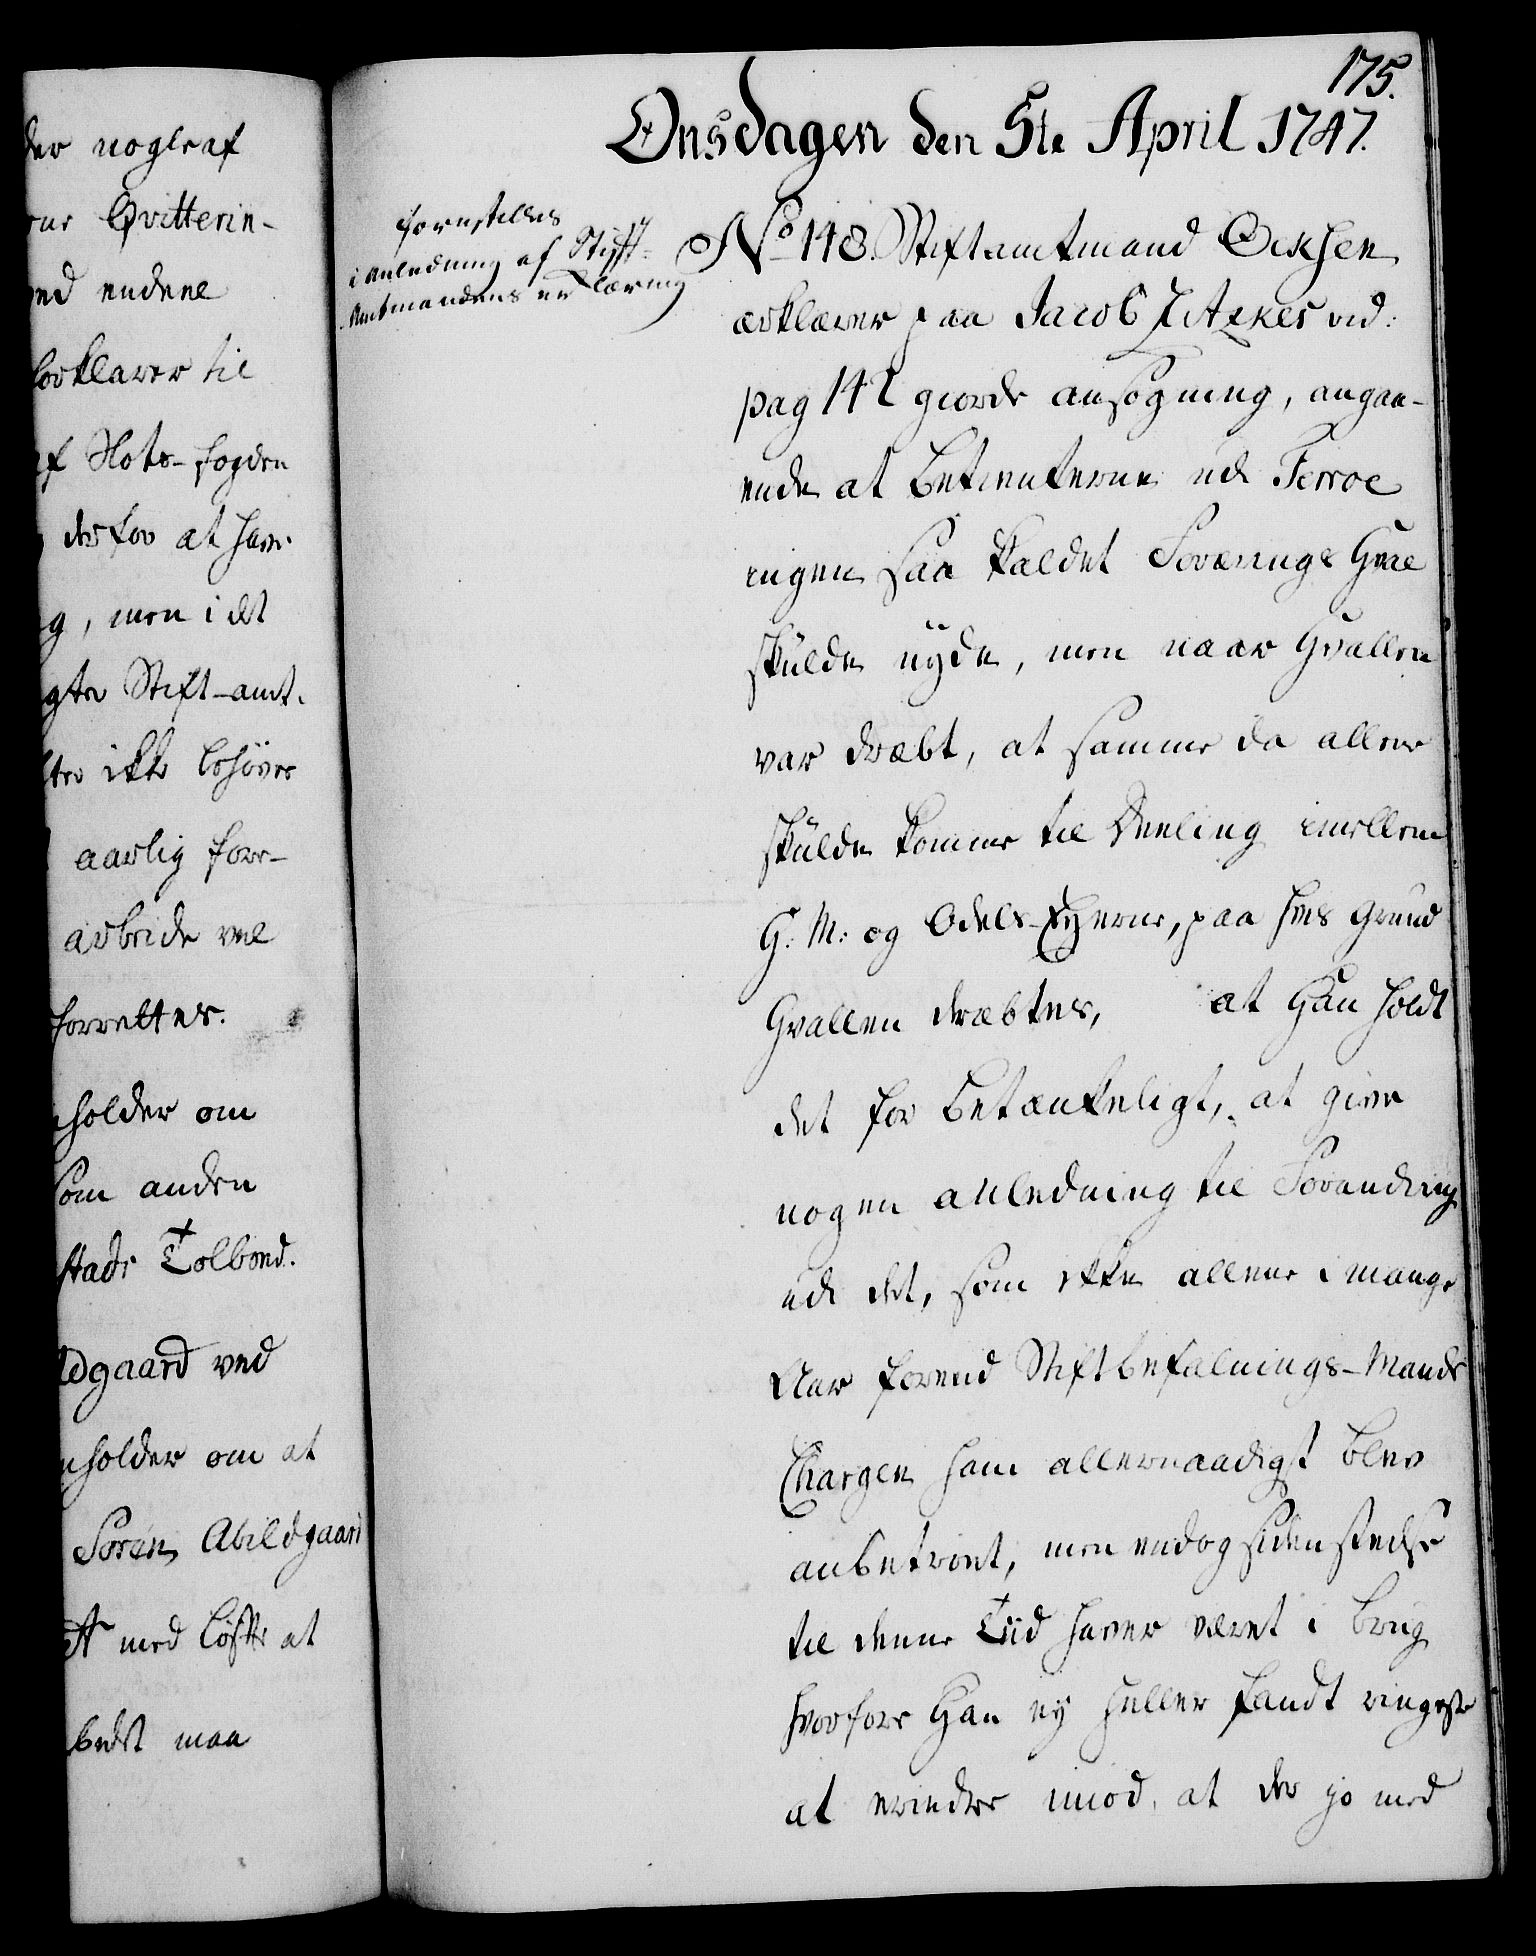 175.
Onsdagen den 5te April 1747.
forestilles
i anledning af Stifft-
Amtmandens erklæring
No 148. Stiftamtmand Ocksen
erklærer paa Jacob Zitzkes vid:
pag 142 giorde ansøgning, angaa-
ende at betienterne udi Ferroe
ingen saa kaldet Foværings Hval
skulde nyde, men naar Hvallen
var dræbt, at samme da allene
skulde komme til Deeling imellem
H: M: og Odels-Eyerne, paa hvis grund
Hvallen dræbtes, at Han holdt
det for betænkeligt, at give
nogen anledning til Forandring
udi det, som ikke allene i mange
Aar forend Stiftbefalnings-Mands
Chargen ham allernaadigst blev
anbetroet, men endog siden stedse
til denne Tiid haver været i brug
hvorfore Han ey heller fandt ringeste
at erindre imod, at der jo med
der nogle af
Qvitterin-
ved endeel
forklarer til
af Slots-fogden
derfor at have
, men i det
Stift-amt.
ikke behøver
aarlig fore-
arbeide vel
forrettes.
holder om
som anden
stads Tolboed.
ldgaard ved
holder om at
Soren Abildgaard
med løfte at
bedst maa